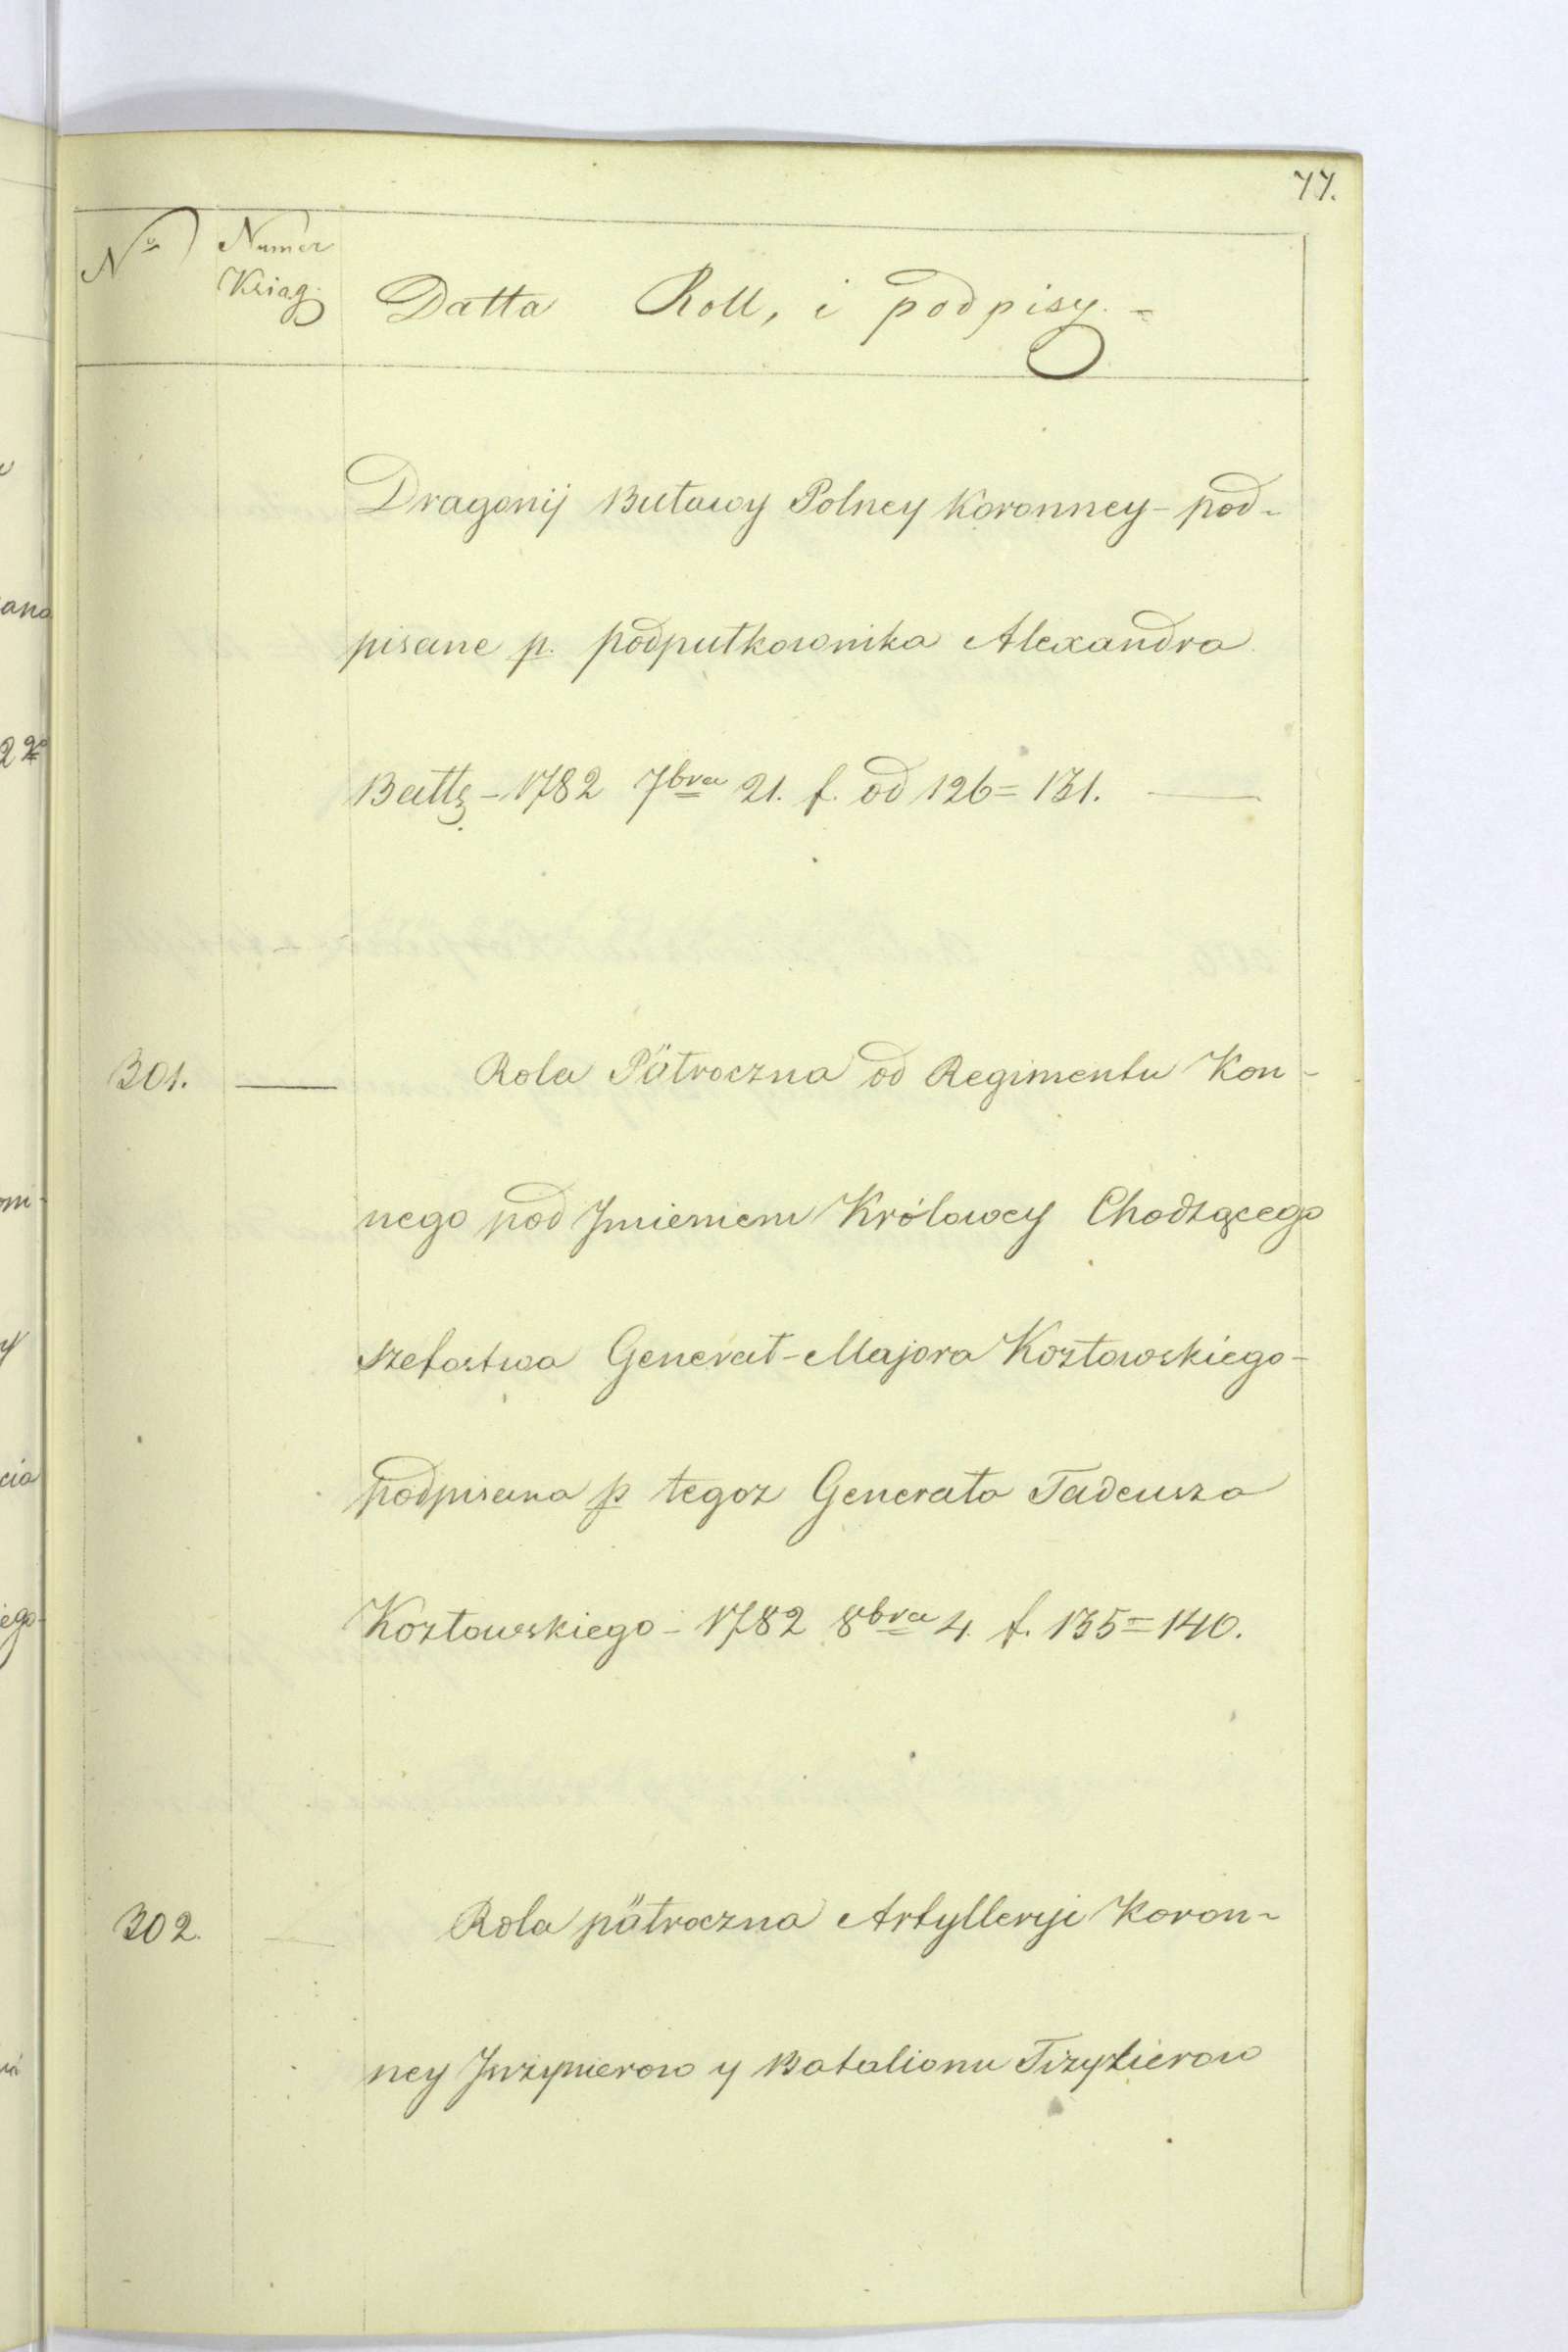 77.
No Numer Ksiag. Datta Roll, i podpisy. -
Dragonij Buławy Polney Koronney - pod-
pisane p. podpułkownika Alexandra
1782 7bra 21. f. od 126 = 131. —
301. — Rola Pätroczna od Regimentu Kon-
nego pod Jmieniem Królowey Chodzącego
szefostwa Generał-Majora Kozłowskiego -
podpisana p tegoz Generała Tadeusza
Kozłowskiego - 1782 8bra 4. f. 135 = 140.
302. — Rola pätroczna Artylleryi Koron-
ney Jnzynierow y Batalionu